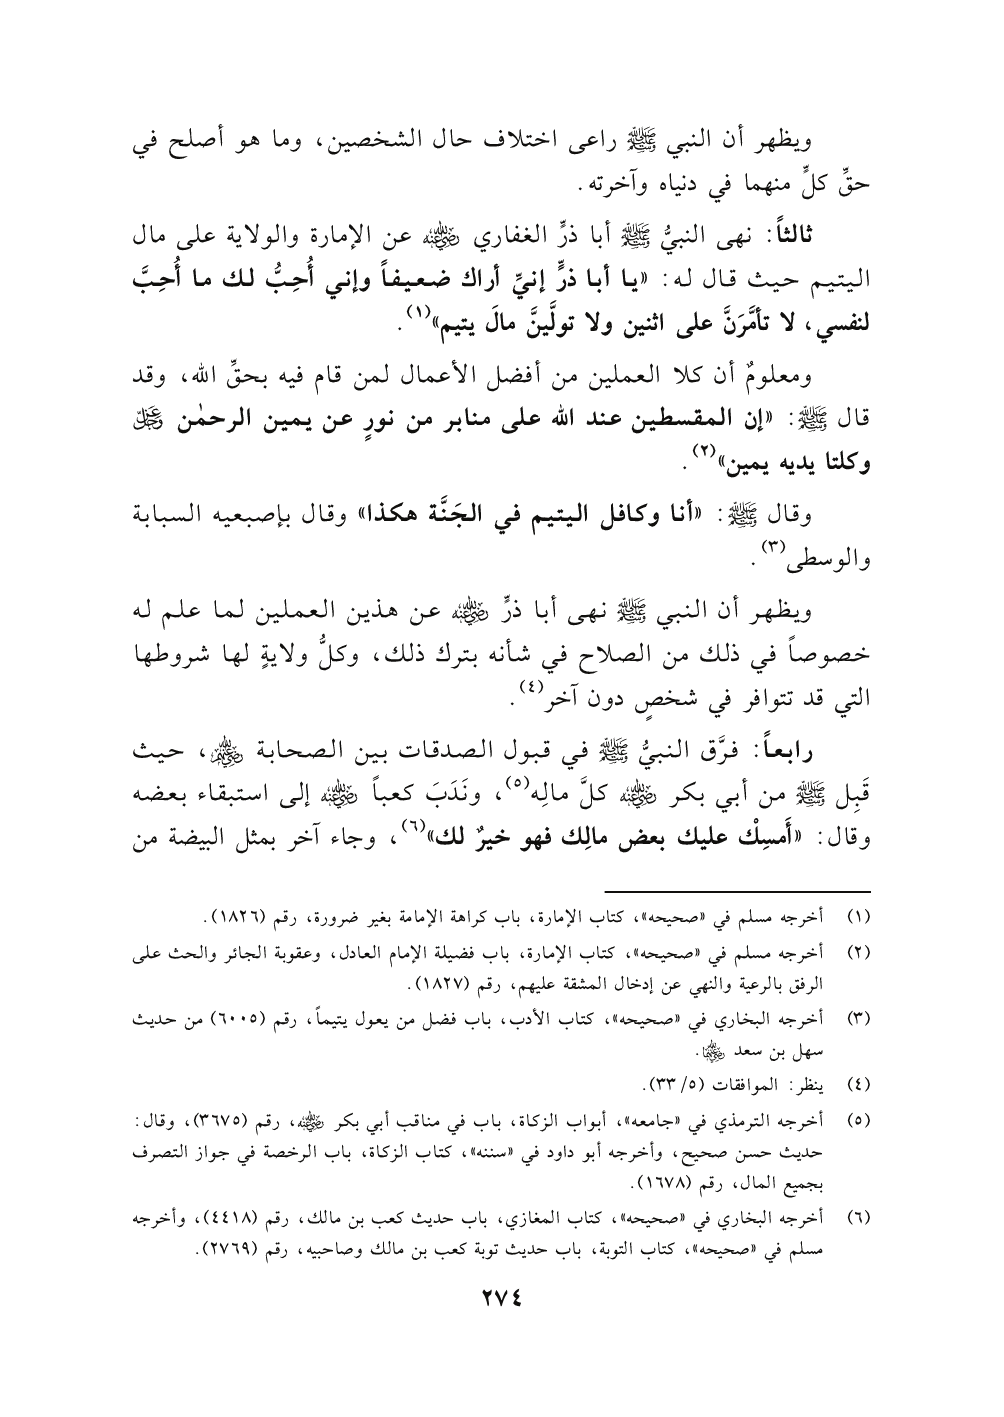 ويظهر أن النبي ﷺ راعى اختلاف حال الشخصين، وما هو أصلح في
حقِّ كلٍّ منهما في دنياه وآخرته.
ثالثاً: نهى النبيُّ ﷺ أبا ذرٍّ الغفاري رضي الله عنه عن الإمارة والولاية على مال
اليتيم حيث قال له: «يا أبا ذرٍّ إنيِّ أراك ضعيفاً وإني أُحِبُّ لك ما أُحِبَّ
لنفسي، لا تأمَّرَنَّ على اثنين ولا تولَّينَّ مالَ يتيم»(١).
ومعلومٌ أن كلا العملين من أفضل الأعمال لمن قام فيه بحقِّ الله، وقد
قال ﷺ: «إن المقسطين عند الله على منابر من نورٍ عن يمين الرحمٰن عز وجل
وكلتا يديه يمين»(٢).
وقال ﷺ: «أنا وكافل اليتيم في الجَنَّة هكذا» وقال بإصبعيه السبابة
والوسطى(٣).
ويظهر أن النبي ﷺ نهى أبا ذرٍّ رضي الله عنه عن هذين العملين لما علم له
خصوصاً في ذلك من الصلاح في شأنه بترك ذلك، وكلُّ ولايةٍ لها شروطها
التي قد تتوافر في شخصٍ دون آخر(٤).
رابعاً: فرَّق النبيُّ ﷺ في قبول الصدقات بين الصحابة رضي الله عنهم، حيث
قَبِل ﷺ من أبي بكر رضي الله عنه كلَّ مالِه(٥)، ونَدَبَ كعباً رضي الله عنه إلى استبقاء بعضه
وقال: «أَمسِكْ عليك بعض مالِك فهو خيرٌ لك»(٦)، وجاء آخر بمثل البيضة من
(١) أخرجه مسلم في «صحيحه»، كتاب الإمارة، باب كراهة الإمامة بغير ضرورة، رقم (١٨٢٦).
(٢) أخرجه مسلم في «صحيحه»، كتاب الإمارة، باب فضيلة الإمام العادل، وعقوبة الجائر والحث على
الرفق بالرعية والنهي عن إدخال المشقة عليهم، رقم (١٨٢٧).
(٣) أخرجه البخاري في «صحيحه»، كتاب الأدب، باب فضل من يعول يتيماً، رقم (٦٠٠٥) من حديث
سهل بن سعد رضي الله عنهما.
(٤) ينظر: الموافقات (٥/ ٣٣).
(٥) أخرجه الترمذي في «جامعه»، أبواب الزكاة، باب في مناقب أبي بكر رضي الله عنه، رقم (٣٦٧٥)، وقال:
حديث حسن صحيح، وأخرجه أبو داود في «سننه»، كتاب الزكاة، باب الرخصة في جواز التصرف
بجميع المال، رقم (١٦٧٨).
(٦) أخرجه البخاري في «صحيحه»، كتاب المغازي، باب حديث كعب بن مالك، رقم (٤٤١٨)، وأخرجه
مسلم في «صحيحه»، كتاب التوبة، باب حديث توبة كعب بن مالك وصاحبيه، رقم (٢٧٦٩).
٢٧٤